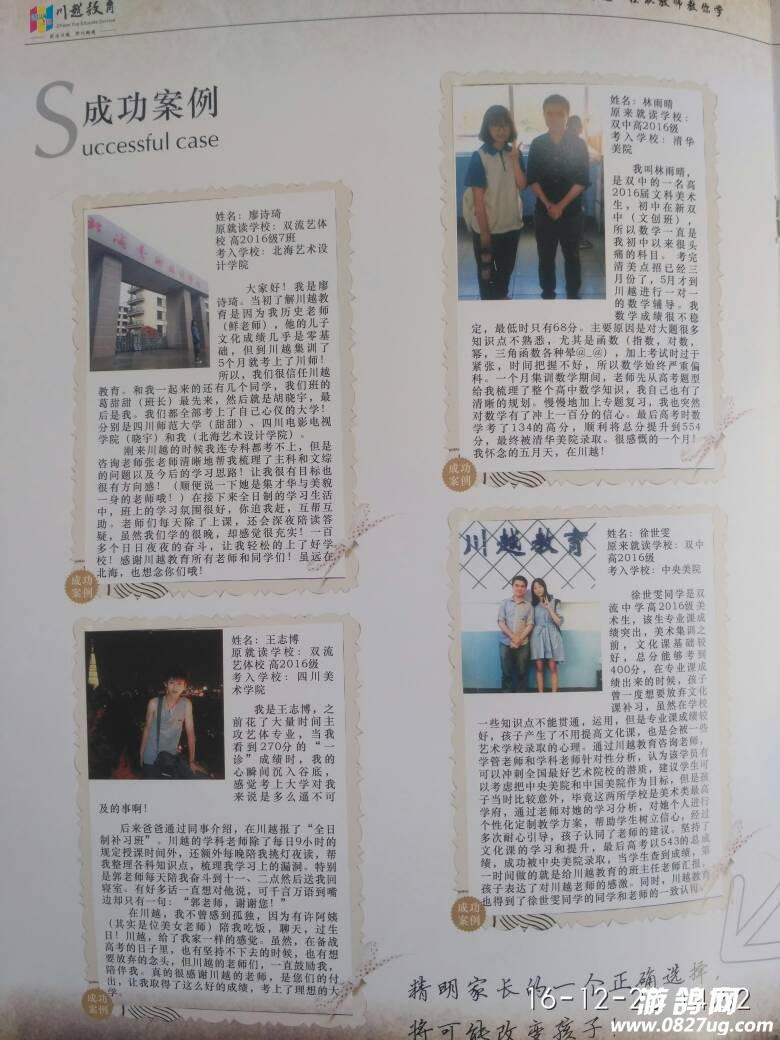 川越教育
成功案例
Successful case
姓名：廖诗琦
原就读学校：双流艺体
校 高2016级7班
考入学校：北海艺术设
计学院
大家好！我是廖
诗琦。当初了解川越教
育是因为我历史老师
（鲜老师），他的儿子
文化成绩几乎是零基
础，但到川越集训了
5个月就考上了川师！
所以，我们很信任川越
教育。和我一起来的还有几个同学，我们班的
葛甜甜（班长）最先来，然后就是胡晓宇，最
后是我。我们都全部考上了自己心仪的大学！
分别是四川师范大学（甜甜）、四川电影电视
学院（晓宇）和我（北海艺术设计学院）。
刚来川越的时候我连专科都考不上，但是
咨询老师张老师清晰地帮我梳理了主科和文综
的问题以及今后的学习思路！让我很有目标也
很有方向感！（顺便说一下她是集才华与美貌
一身的老师哦！）在接下来全日制的学习生活
中，班上的学习氛围很好，你追我赶，互帮互
助。老师们每天除了上课，还会深夜陪读答
疑，虽然我们学的很晚，却感觉很充实！一百
多个日日夜夜的奋斗，让我轻松的上了好学
校！感谢川越教育所有老师和同学们！虽远在
北海，也想念你们哦！
成功
案例
姓名：王志博
原就读学校：双流
艺体校 高2016级
考入学校：四川美
术学院
我是王志博，之
前花了大量时间主
攻艺体专业，当我
看到270分的“一
诊”成绩时，我的
心瞬间沉入谷底，
感觉考上大学对我
来说是多么遥不可
及的事啊！
后来爸爸通过同事介绍，在川越报了“全日
制补习班”。川越的学科老师除了每日9小时的
规定授课时间外，还额外每晚陪我挑灯夜读，帮
我整理各科知识点，梳理我学习上的漏洞。特别
是郭老师每天陪我奋斗到十一、二点然后送我回
寝室。有好多话一直想对他说，可千言万语到嘴
边却只有一句：“郭老师，谢谢您！”
在川越，我不曾感到孤独，因为有许阿姨
（其实是位美女老师）陪我吃饭，聊天，过生
日！川越，给了我家一样的感觉。虽然，在备战
高考的日子里，也有坚持不下去的时候，也有想
要放弃的念头，但川越的老师们，一直鼓励我，
陪伴我。真的很感谢川越的老师，是您们的付
出，让我取得了这么好的成绩，考上了理想的大
学。
成功
案例
姓名：林雨晴
原来就读学校：
双中高2016级
考入学校：清华
美院
我叫林雨晴，
是双中的一名高
2016届文科美术
生，初中在新双
中（文创班），
所以数学一直是
我初中以来很头
痛的科目。考完
清美点招已经三
月份了，5月才到
川越进行一对一
的数学辅导。我
数学成绩很不稳
定，最低时只有68分。主要原因是对大题很多
知识点不熟悉，尤其是函数（指数，对数，
幂，三角函数各种晕@_@），加上考试时过于
紧张，时间把握不好，所以数学始终严重偏
科。一个月集训数学期间，老师先从高考题型
给我梳理了整个高中数学知识，我自己也有了
清晰的规划。慢慢地加上专题复习，我也突然
对数学有了冲上一百分的信心。最后高考时数
学考了134的高分，顺利将总分提升到554
分，最终被清华美院录取。很感慨的一个月！
我怀念的五月天，在川越！
成功
案例
川越教育
姓名：徐世雯
原来就读学校：双中
高2016级
考入学校：中央美院
徐世雯同学是双
流中学高2016级美
术生，该生专业课成
绩突出，美术集训之
前，文化课基础较
好，总分能够考到
400分，在专业课成
绩出来的时候，孩子
曾一度想要放弃文化
课补习，虽然在学校
一些知识点不能贯通，运用，但是专业课成绩较
好，孩子产生了不用提高文化课，也是会被一些
艺术学校录取的心理。通过川越教育咨询老师，
学管老师和学科老师针对性分析，认为该学员有
可以冲刺全国最好艺术院校的潜质，建议学生可
以考虑把中央美院和中国美院作为目标，但是孩
子当时比较意外，毕竟这两所学校是美术类最高
学府，通过老师对她的学习分析，对她个人进行
个性化定制教学方案，帮助学生树立信心，经过
多次耐心引导，孩子认同了老师的建议。坚持了
文化课的学习和提升，最后高考以543的总成
绩，成功被中央美院录取，当学生查到成绩，第
一时间做的就是给川越教育的班主任老师汇报，
孩子表达了对川越老师的感激。同时，川越教育
也得到了徐世雯同学的同学和老师的一致认可。
成功
案例
精明家长的一个正确选择，
将可能改变孩子
16-12-2
游鸽网
www.0827ug.com